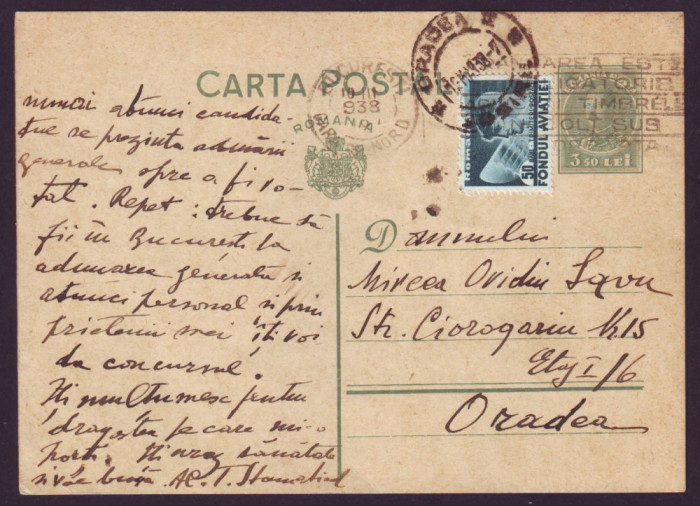 CARTA POSTALĂ
ROMANIA
BUCUREȘTI
10 III
938
NORD
ORADEA
AREA ESTE
TIMBRELE
SUB
3.50 LEI
50
FONDUL AVIAȚIEI
numai atunci candida-
se prezinta adunării
generale spre a fi vo-
tat. Repet: trebue să
fii în București la
adunarea generală și
atunci personal și prin
prietenii mei îți voi
da concursul.
Iți multumesc pentru
dragostea pe care mi-o
porți. Iți urez sănătate
și voe bună Al. T. Stamatiad
Domnului
Mircea Ovidiu Savu
Str. Ciorogariu K15
Etaj I/6
Oradea